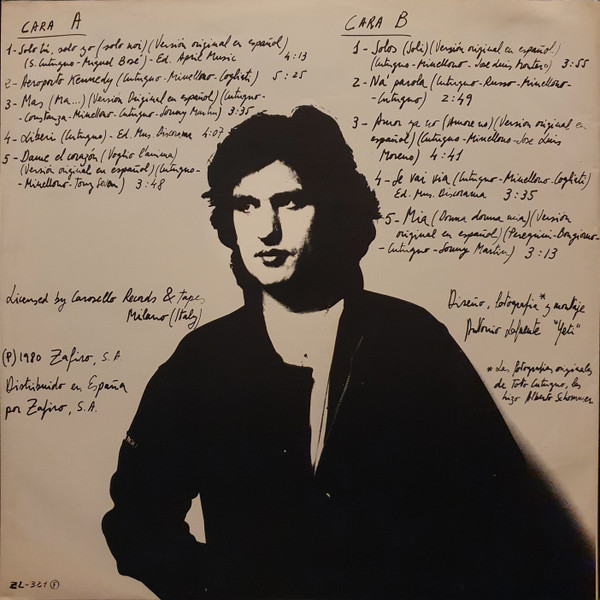 CARA A
1- Solo tú, solo yo (solo noi) (Versión original en español)
(S. Cutugno - Miguel Bosé) - Ed. April Music 4:13
2- Aeroporto Kennedy (Cutugno - Minellono -
5:25
3- Mas (Ma...) (Versión Original en español) (Cutugno -
- Costanza - Minellono - Cutugno - Sonny Martin) 3:35
4- Liberi (Cutugno) - Ed. Mus. Discorama 4:07
5- Dame el corazón (Voglio l'anima)
(Versión original en español) (Cutugno -
- Minellono - Tony 3:48
CARA B
1- Solos (Soli) (Versión original en español)
(Cutugno - Minellono - Jose Luis Moreno) 3:55
2- Na' parola (Cutugno - Russo - Minellono -
- Cutugno) 2:49
3- Amor ya no (Amore no) (Versión original en
español) (Cutugno - Minellono - Jose Luis
Moreno) 4:41
4- Se vai via (Cutugno - Minellono -
Ed. Mus. Discorama 3:35
5- Mia (Donna donna mia) (Versión
original en español) (
- Cutugno - Sonny Martin) 3:13
Licensed by Carosello Records & Tapes
Milano (Italy)
(P) 1980 Zafiro, S.A
Distribuido en España
por Zafiro, S.A.
Diseño, fotografia * y montaje
Antonio Lafuente "Yeti"
* Las fotografias originales
de Toto Cutugno, las
hizo Alberto Schommer
ZL-321 (P)